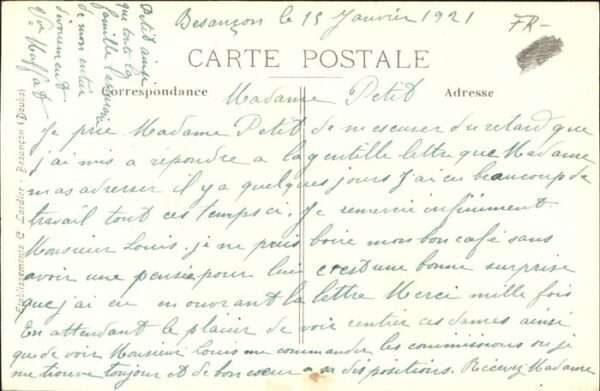 Besançon le 15 Janvier 1921
FR-
CARTE POSTALE
Correspondance
Adresse
Madame Petit
Je prie Madame Petit de m'escuser du retard que
j'ai mis a répondre a la gentille lettre que Madame
m as adresser il y a quelques jours J'ai eu beaucoup de
travail tout ces temps ci. Je remercie infiniment
Monsieur Louis. je ne puis boire mon bon café sans
avoir une pensée pour lui c'est une bonne surprise
que j'ai eu m ouvrant la lettre Merci mille fois
En attendant le plaisir de voir rentrer ces dames ainsi
que de voir Monsieur Louis me commander les commissions ou je
me trouve toujours et de bon coeur a vos dispositions. Recevez Madame
Petit ainsi
que toute la
famille
de mon entier
dévouement
Etablissements C. Lardier - Besançon (Doubs)